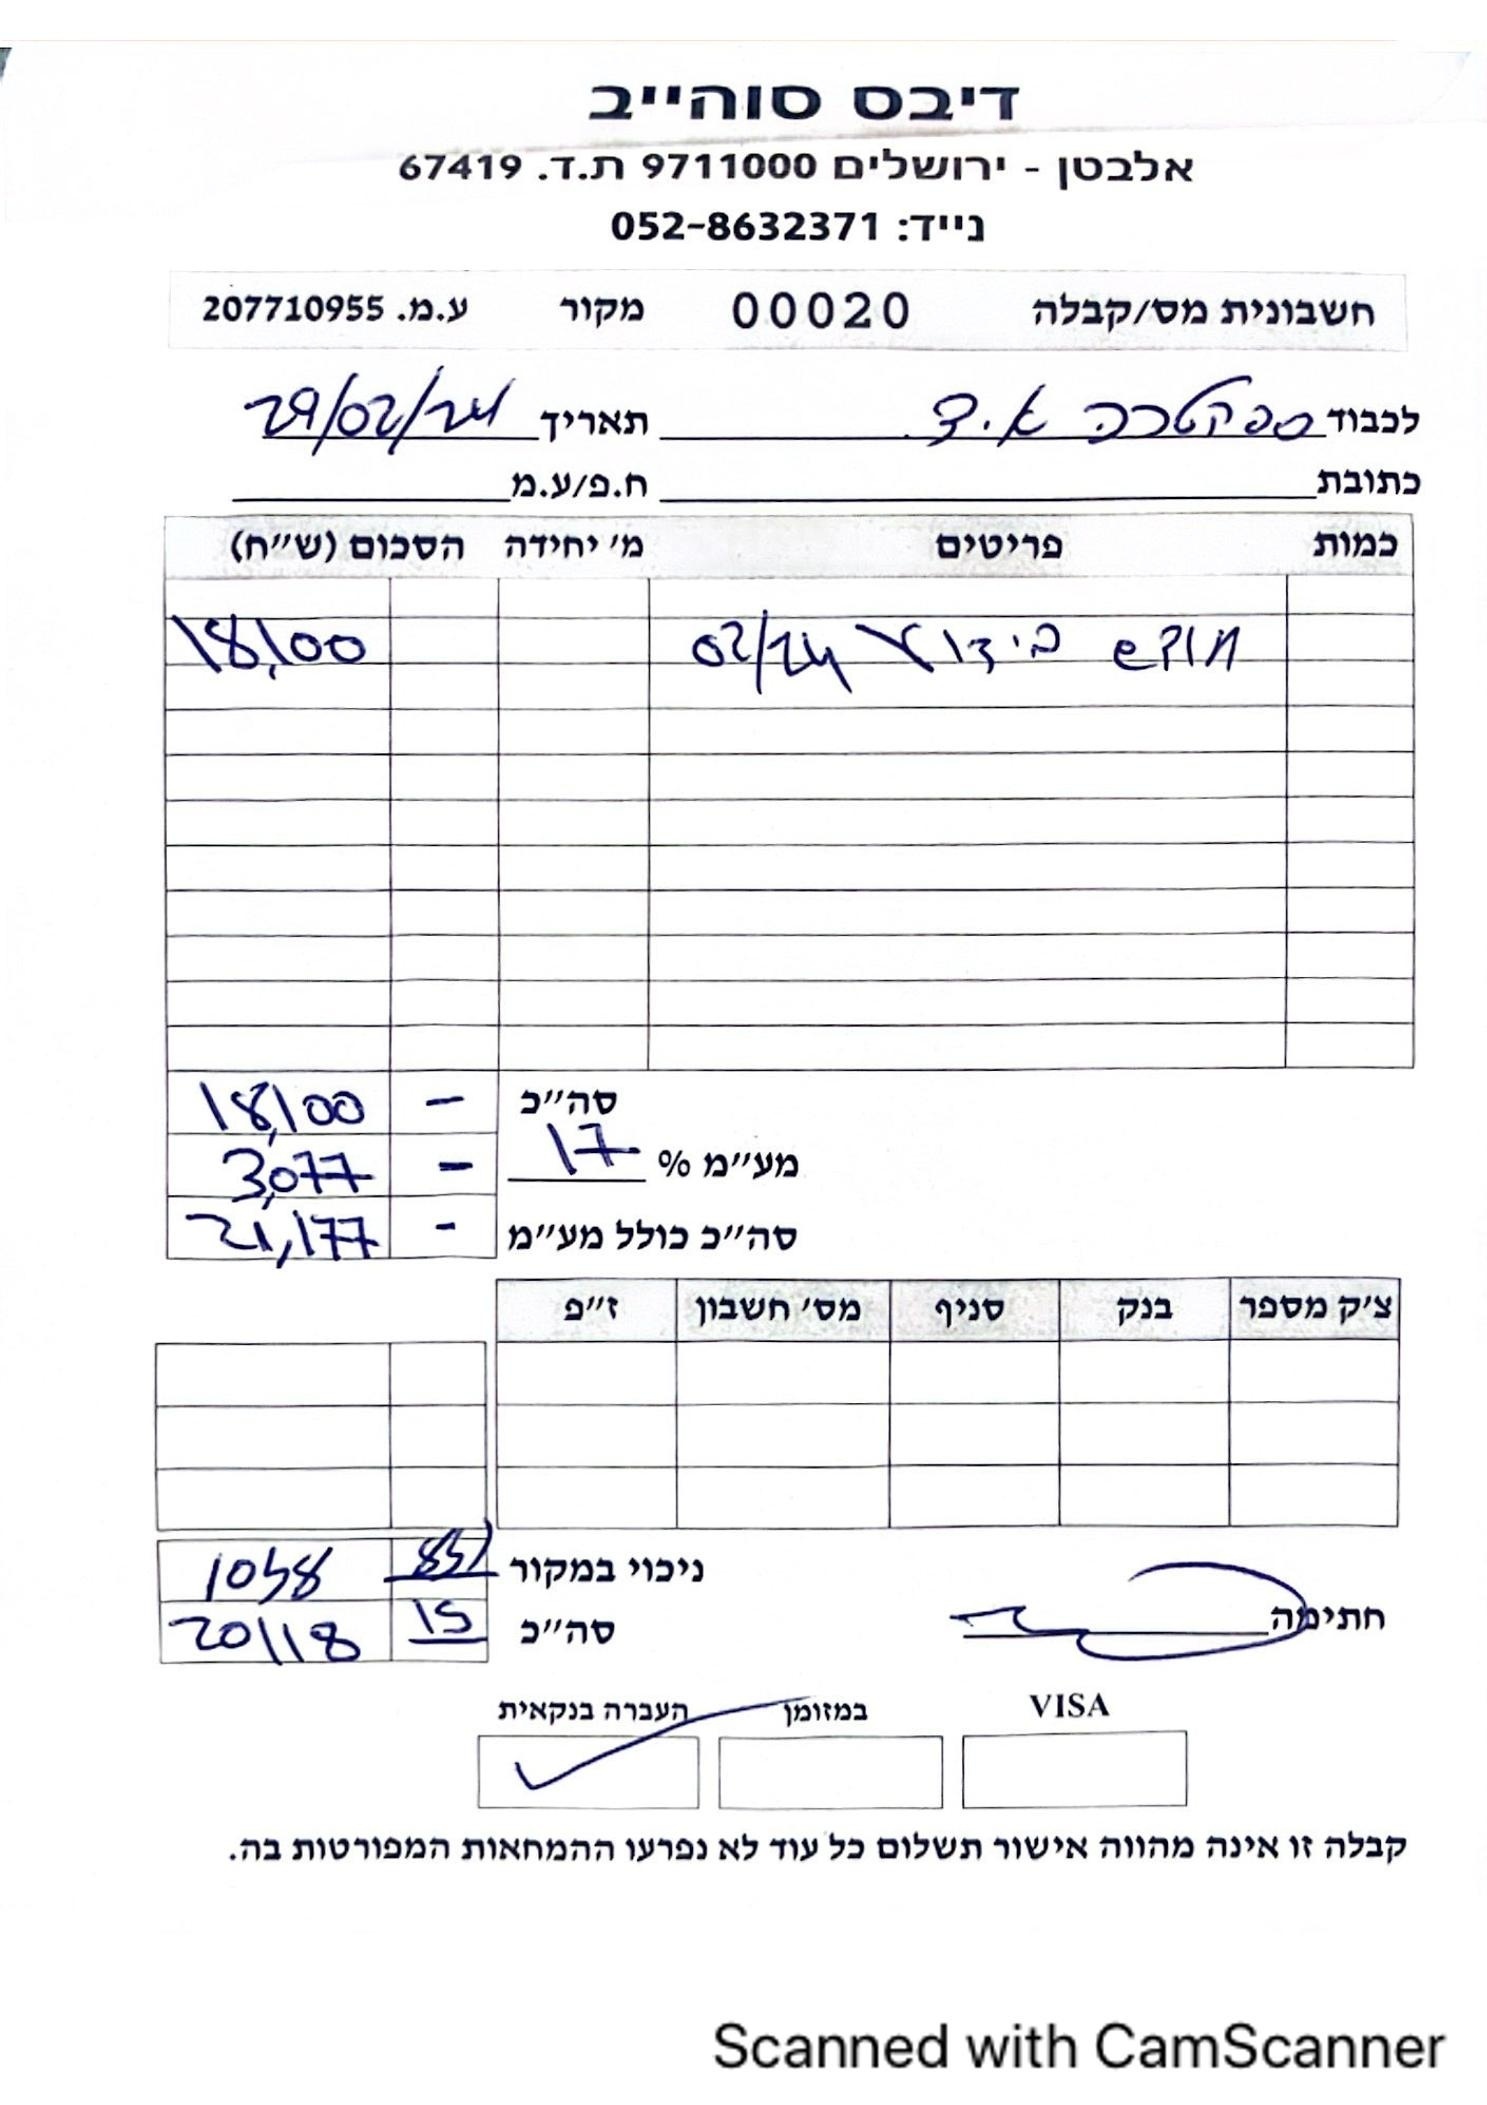 דיבס סוהייב
אלבטן - ירושלים 9711000 ת.ד. 67419
נייד: 052-8632371
חשבונית מס/קבלה 00020 מקור ע.מ. 207710955
לכבוד ספקטרה א.ד תאריך 29/02/24
כתובת ח.פ/ע.מ
כמות פריטים מ' יחידה הסכום (ש״ח)
חודש 02/24 18,100
סה״כ - 18,100
מע״מ % 17 - 3,077
סה״כ כולל מע״מ - 21,177
צ'ק מספר בנק סניף מס' חשבון ז״פ
ניכוי במקור 85 1058
חתימה סה״כ 15 20118
VISA במזומן העברה בנקאית
קבלה זו אינה מהווה אישור תשלום כל עוד לא נפרעו ההמחאות המפורטות בה.
Scanned with CamScanner